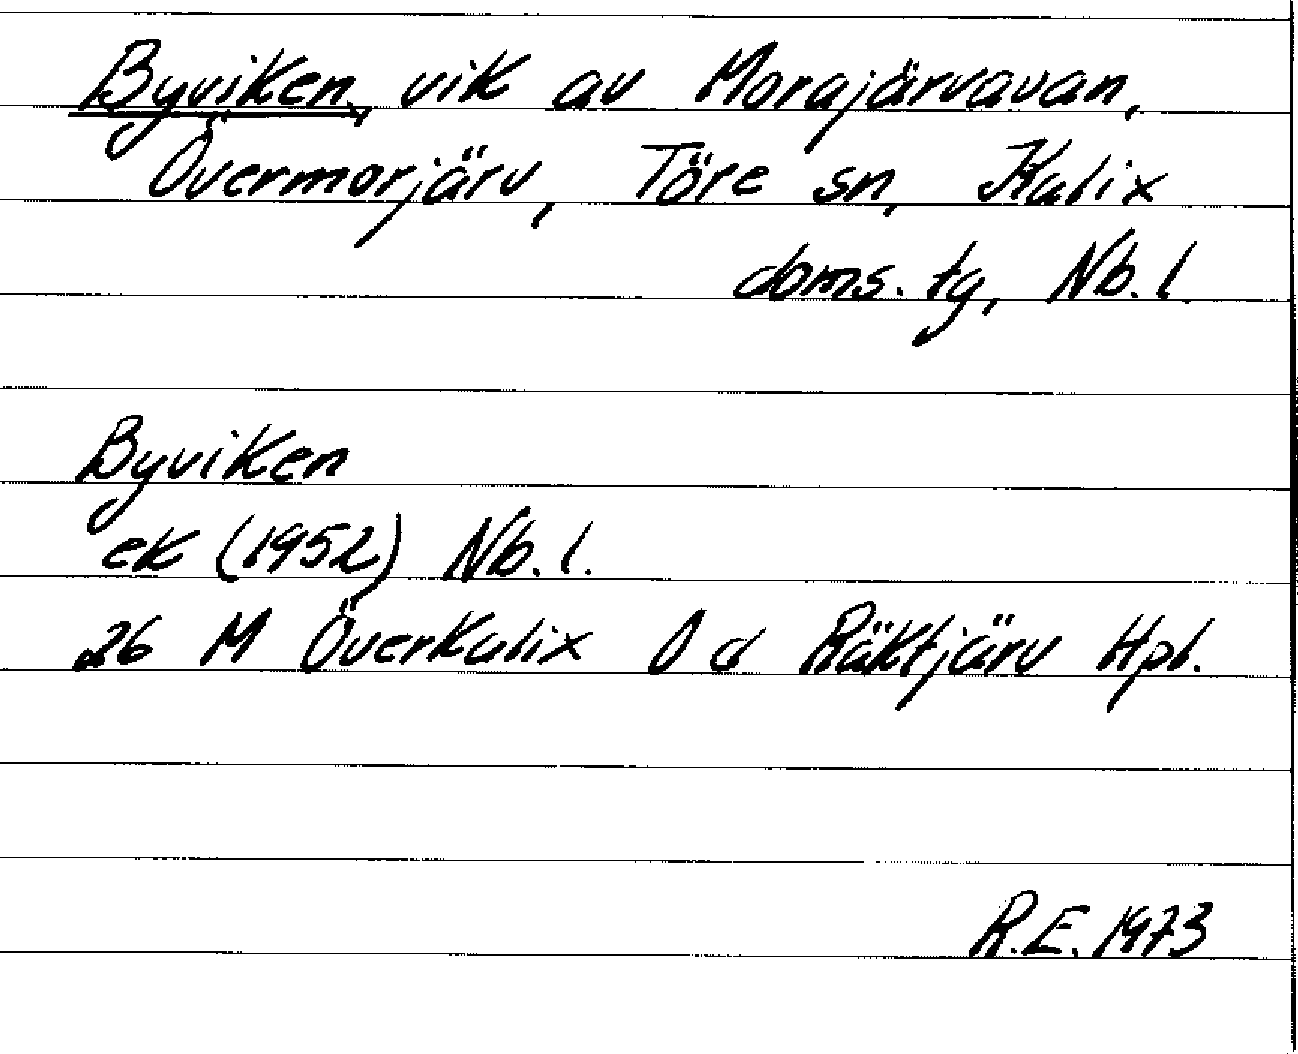 Byviken, vik av Morajärvavan,
Övermorjärv, Töre sn, Kalix
doms. tg, Nb. l.
Byviken
ek (1952) Nb. l.
26 M Överkalix O d Räktjärv Hpl.
R.E. 1973